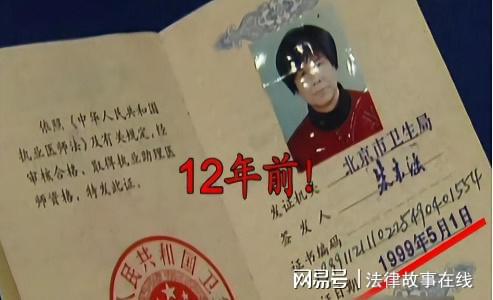 依照《中华人民共和国
执业医师法》及有关规定，经
审核合格，取得执业助理医
师资格，特发此证。
人民共和国卫
北京市卫生局
发证机关
签发人
证书编码
证日期
1999年5月1日
12年前！
网易号
法律故事在线